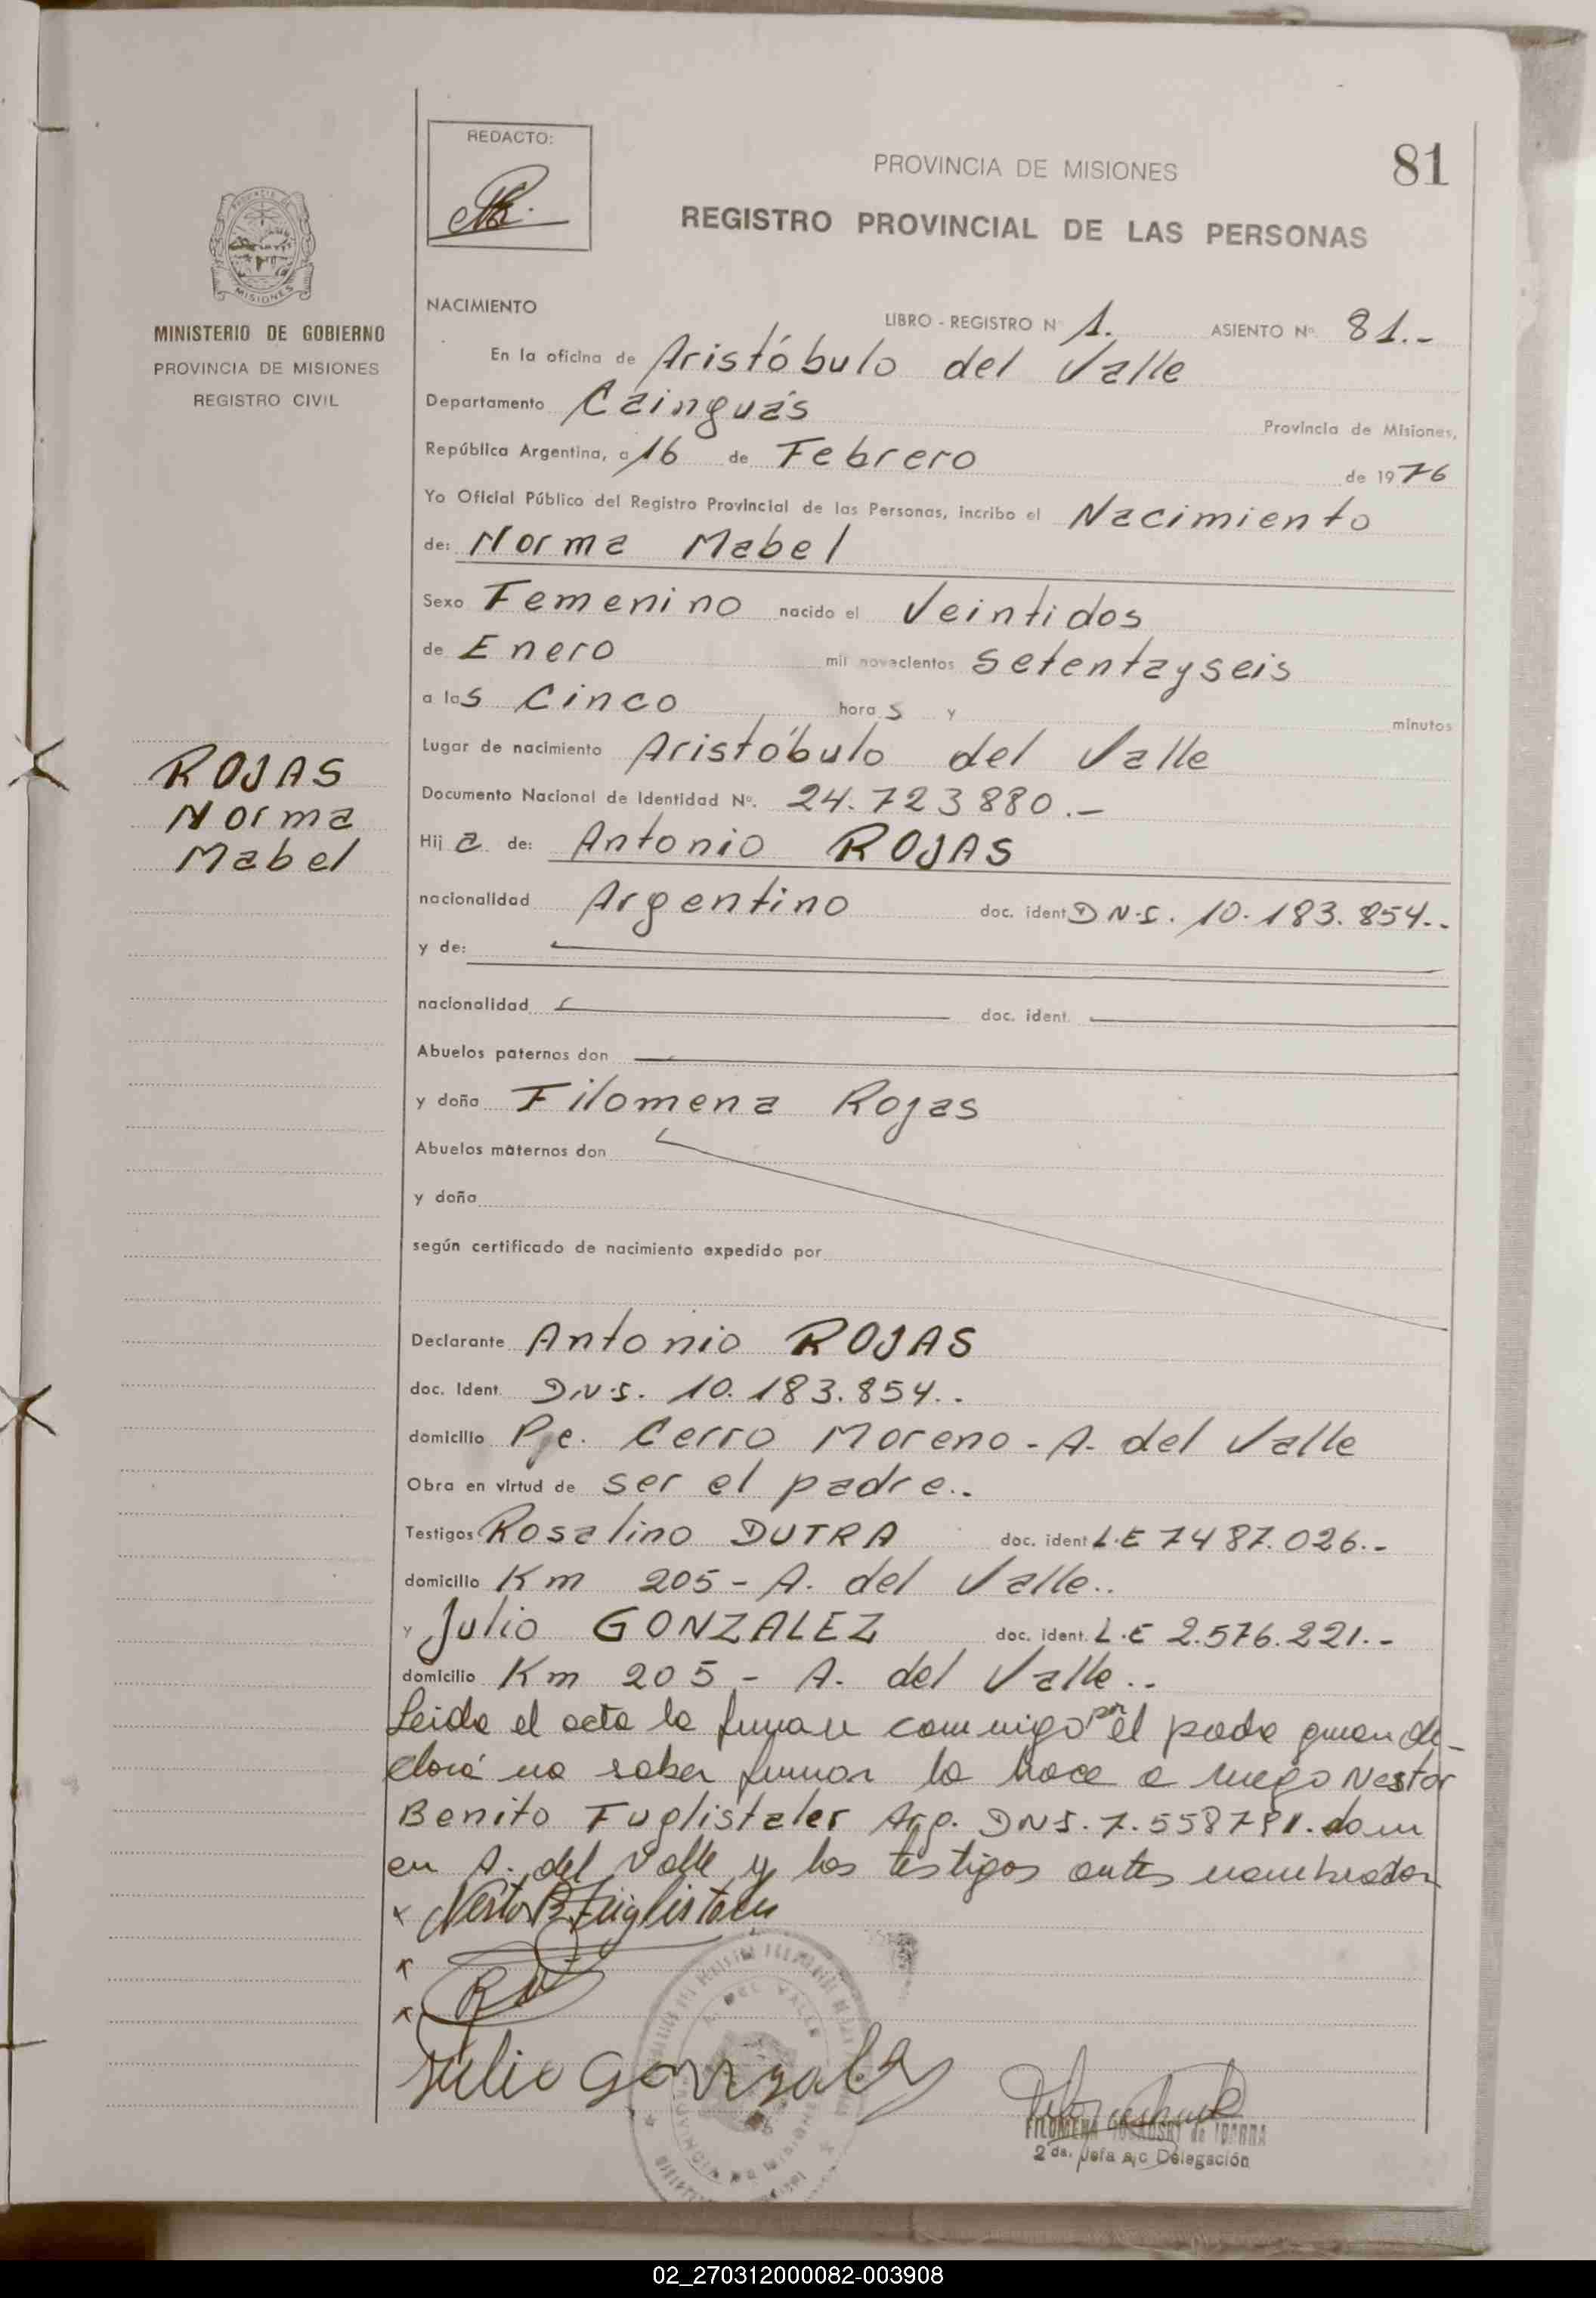 REDACTO:
PROVINCIA DE MISIONES
81
REGISTRO PROVINCIAL DE LAS PERSONAS
MISIONES
MINISTERIO DE GOBIERNO
PROVINCIA DE MISIONES
REGISTRO CIVIL
NACIMIENTO
LIBRO - REGISTRO Nº 1. ASIENTO Nº 81.-
En la oficina de Aristóbulo del Valle
Departamento Cainguás Provincia de Misiones,
República Argentina, a 16 de Febrero de 1976
Yo Oficial Público del Registro Provincial de las Personas, incribo el Nacimiento
de: Norma Mabel
Sexo Femenino nacido el Veintidos
de Enero mil novecientos setentayseis
a las Cinco horas y minutos
Lugar de nacimiento Aristóbulo del Valle
ROJAS
Norma
Mabel
Documento Nacional de Identidad Nº. 24.723880.-
Hija de: Antonio ROJAS
nacionalidad Argentino doc. ident D.N.I. 10.183.854..
y de:
nacionalidad doc. ident.
Abuelos paternos don
y doña Filomena Rojas
Abuelos maternos don
y doña
según certificado de nacimiento expedido por
Declarante Antonio ROJAS
doc. Ident. D.N.I. 10.183.854..
domicilio Pje. Cerro Moreno - A. del Valle
Obra en virtud de ser el padre..
Testigos Rosalino DUTRA doc. ident L.E 7487.026.-
domicilio Km 205 - A. del Valle..
y Julio GONZALEZ doc. ident. L.E 2.576.221.-
domicilio Km 205 - A. del Valle..
Leida el acta la firman conmigo por el padre quien de-
claró no saber firmar lo hace a ruego Nestor
Benito Fuglistaler Arg. DNI. 7.558791. dom
en A. del Valle y los testigos antes nombrados
Nestor B. Fuglistaler
Julio Gonzalez
2da. Jefa a/c Delegación
02_270312000082-003908